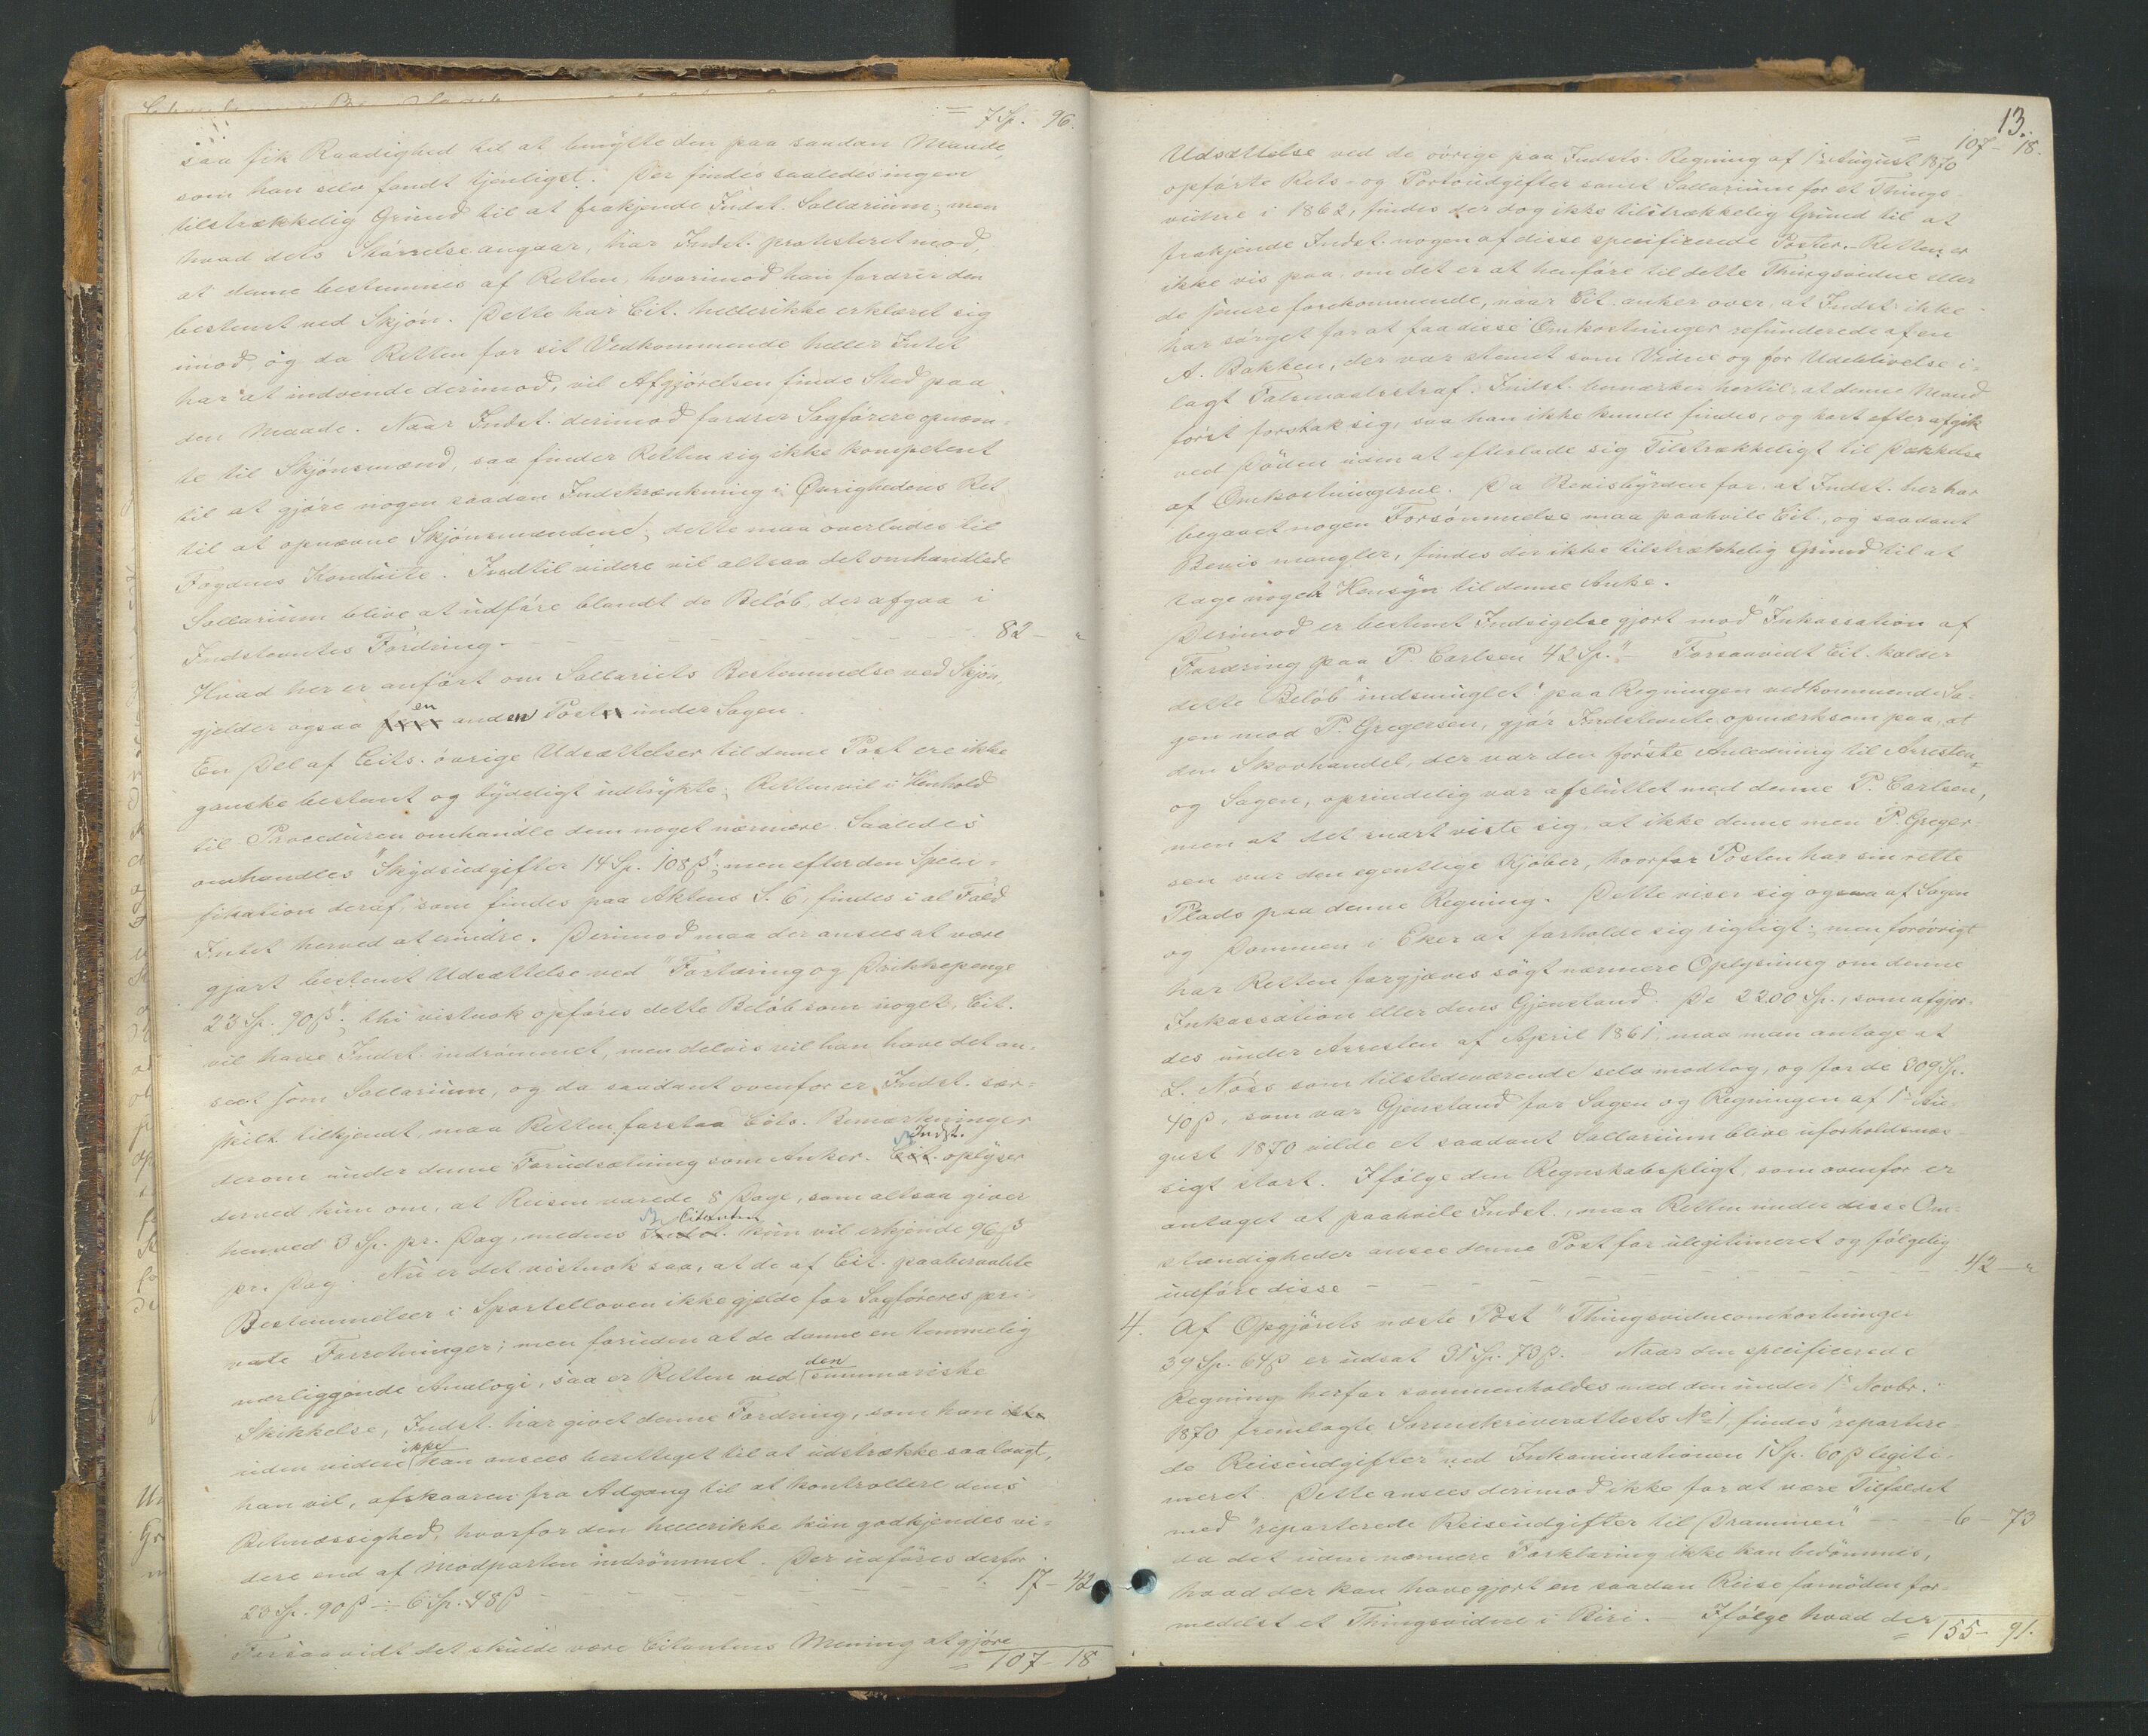 = 7 Sp. 96.
saa fik Raadighed til at benytte den paa saadan Maade,
som han selv fandt tjenligst. Der findes saaledes ingen
tilstrækkelig Grund til at frakjende Indst. Sallarium; men
hvad dets Størrelse angaar, har Indst. protesteret mod,
at denne bestemmes af Retten, hvorimod han fordrer den
bestemt ved Skjøn. Dette har Cit. hellerikke erklæret sig
imod, og da Retten for sit Vedkommende heller Intet
har at indvende derimod, vil Afgjørelsen finde Sted paa
den Maade. Naar Indst. derimod fordrer Sagførere opnævn-
te til Skjønsmænd, saa finder Retten sig ikke kompetent
til at gjøre nogen saadan Indskrænkning i Øvrighedens Ret
til at opnævne Skjønsmændene; dette maa overlades til
Fogdens Konduite. Indtil videre vil altsaa det omhandlede
Sallarium blive at udføre blandt de Beløb, der afgaa i
Indstevntes Fordring. 82 — "
Hvad her er anført om Sallariets Bestemmelse ved Skjøn,
gjelder ogsaa en anden Post under Sagen.
En Del af Cits. øvrige Udsættelser til denne Post ere ikke
ganske bestemt og tydeligt udtrykte; Retten vil i Henhold
til Proceduren omhandle dem noget nærmere. Saaledes
omhandles "Skydsudgifter 14 Sp. 108 ß"; men efter den Speci-
fikation deraf, som findes paa Aktens S. 6, findes i al Fald
Intet herved at erindre. Derimod maa der ansees at være
gjort bestemt Udsættelse ved "Fortæring og Drikkepenge
23 Sp. 90 ß"; thi vistnok opføres dette Beløb som noget, Cit.
vil have Indst. indrømmet, men delvis vil han have det an-
seet som Sallarium, og da saadant ovenfor er Indst. sær-
skilt tilkjendt, maa Retten forstaa Cits. Bemærkninger
derom under denne Forudsætning som Anker. Indst. oplyser
derved kun om, at Reisen varede 8 Dage, som altsaa giver
henved 3 Sp. pr. Dag, medens Citanten kun vil erkjende 96 ß
pr. Dag. Nu er det vistnok saa, at de af Cit. paaberaabte
Bestemmelser i Sportelloven ikke gjelde for Sagføreres pri-
vate Forretninger; men foruden at de danne en temmelig
nærliggende Analogi, saa er Retten ved den summariske
Skikkelse, Indst. har givet denne Fordring, som han
uden videre ikke kan ansees berettiget til at udstrække saa langt,
han vil, afskaaren fra Adgang til at kontrollere dens
Retmæssighed, hvorfor den hellerikke kan godkjendes vi-
dere end af Modparten indrømmet. Der udføres derfor
23 Sp. 90 ß ÷ 6 Sp. 48 ß 17 — 42
Forsaavidt det skulde være Citantens Mening at gjøre
= 107 — 18
13.
= 107 — 18.
Udsættelse ved de øvrige paa Indsts. Regning af 1ste August 1870
opførte Rets- og Portoudgifter samt Sallarium for et Things-
vidne i 1862, findes der dog ikke tilstrækkelig Grund til at
frakjende Indst. nogen af disse specificerede Poster. Retten er
ikke vis paa, om det er at henføre til dette Thingsvidne eller
de senere forekommende, naar Cit. anker over, at Indst. ikke
har sørget for at faa disse Omkostninger refunderede af en
A. Bakken, der var stevnt som Vidne og for Udeblivelse i-
lagt Falsmaalsstraf. Indst. bemærker hertil, at denne Mand
først forstak sig, saa han ikke kunde findes, og kort efter afgik
ved Døden uden at efterlade sig Tilstrækkeligt til Dækkelse
af Omkostningerne. Da Bevisbyrden for, at Indst. her har
begaaet nogen Forsømmelse maa paahvile Cit., og saadant
Bevis mangler, findes der ikke tilstrækkelig Grund til at
tage noget Hensyn til denne Anke.
Derimod er bestemt Indsigelse gjort mod "Inkassation af
Fordring paa P. Carlsen 42 Sp." Forsaavidt Cit. kalder
dette Beløb "indsmuglet" paa Regningen vedkommende Sa-
gen mod P. Gregersen, gjør Indstevnte opmærksom paa, at
den Skovhandel, der var den første Anledning til Arresten
og Sagen, oprindelig var afsluttet med denne P. Carlsen,
men at det snart viste sig, at ikke denne men P. Greger-
sen var den egentlige Kjøber, hvorfor Posten har sin rette
Plads paa denne Regning. Dette viser sig ogsaa af Sagen
og Dommen i Eker at forholde sig rigtigt; men forøvrigt
har Retten forgjæves søgt nærmere Oplysning om denne
Inkassation eller dens Gjenstand. De 2200 Sp., som afgjor-
des under Arresten af April 1861, maa man antage at
L. Næss som tilstedeværende selv modtog, og for de 309 Sp.
40 ß, som var Gjenstand for Sagen og Regningen af 1ste Au-
gust 1870 vilde et saadant Sallarium blive uforholdsmæs-
sigt stort. Ifølge den Regnskabspligt, som ovenfor er
antaget at paahvile Indst., maa Retten under disse Om-
stændigheder ansee denne Post for ulegitimeret og følgelig
udføre disse 42 — "
4. Af Opgjørets næste Post "Thingsvidneomkostninger
39 Sp. 64 ß er udsat 31 Sp. 73 ß. — Naar den specificerede
Regning herfor sammenholdes med den under 1ste Novbr.
1870 fremlagte Sorenskriverattests No 1, findes "repartere-
de Reiseudgifter" ved Inkaminationen 1 Sp. 60 ß legiti-
meret. Dette ansees derimod ikke for at være Tilfældet
med "reparterede Reiseudgifter til Drammen" 6 — 73
da det uden nærmere Forklaring ikke kan bedømmes,
hvad der kan have gjort en saadan Reise fornøden for-
medelst et Thingsvidne i Biri. — Ifølge hvad der
= 155 — 91.